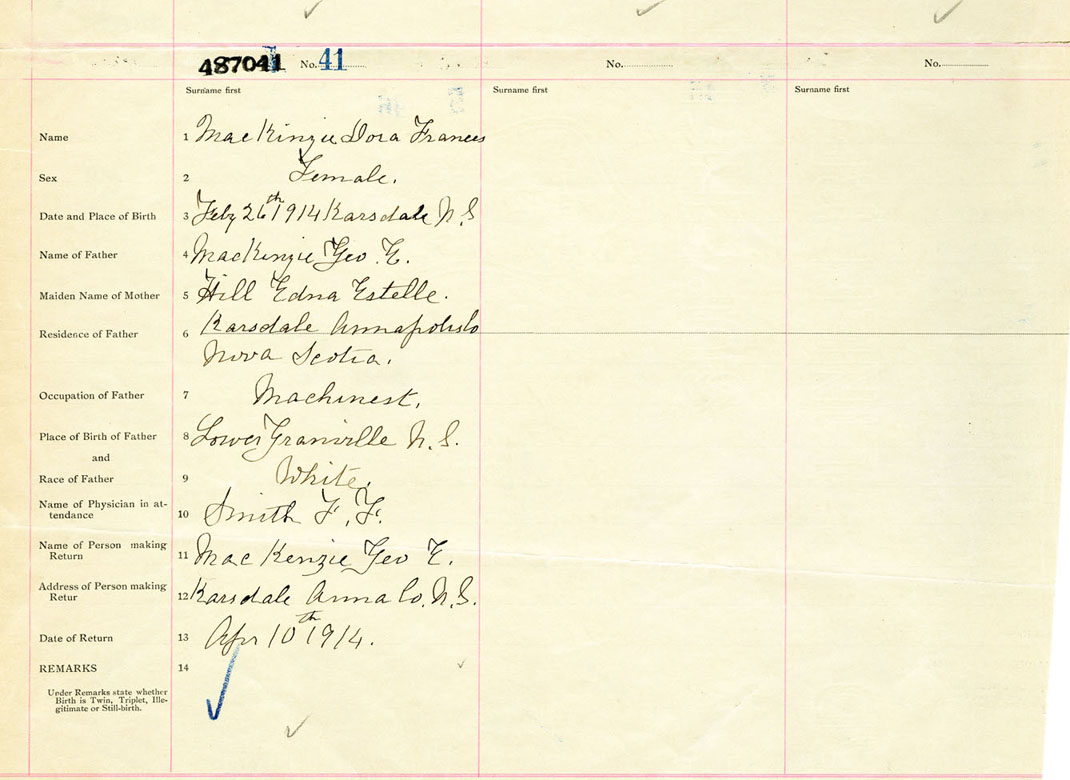 487041 No. 41 No. No.
Surname first Surname first Surname first
Name 1 MacKinzie Dora Frances
Sex 2 Female.
Date and Place of Birth 3 Feby 26th 1914 Karsdale N S
Name of Father 4 MacKinzie Geo. E.
Maiden Name of Mother 5 Hill Edna Estelle.
Residence of Father 6 Karsdale Annapolis Co
Nova Scotia.
Occupation of Father 7 Machinest.
Place of Birth of Father 8 Lower Granville N. S.
and
Race of Father 9 White.
Name of Physician in at-
tendance 10 Smith F. F.
Name of Person making
Return 11 MacKenzie Geo E.
Address of Person making
Retur 12 Karsdale Anna Co. N. S.
Date of Return 13 Apr 10th 1914.
REMARKS 14
Under Remarks state whether
Birth is Twin, Triplet, Ille-
gitimate or Still-birth.